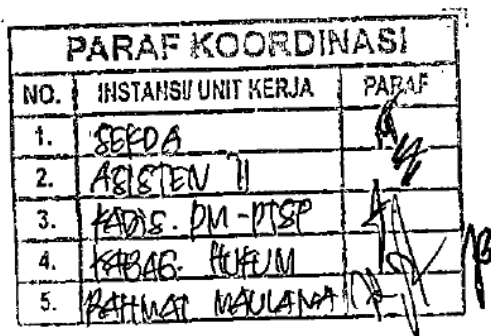 PARAF KOORDINASI
NO. INSTANSI/ UNIT KERJA PARAF
1. SEKDA
2. ASISTEN II
3. KADIS. PM-PTSP
4. KABAG. HUKUM
5. RAHMAT MAULANA